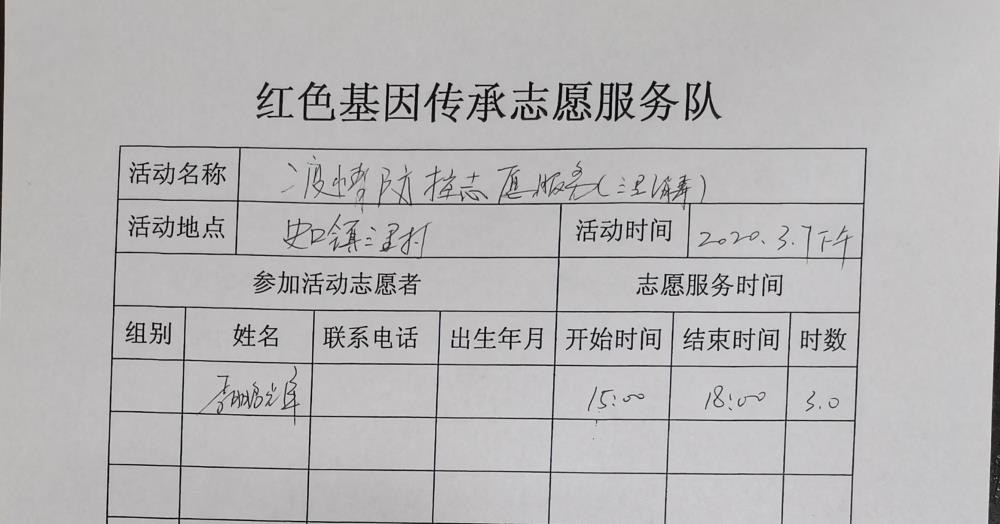 红色基因传承志愿服务队
活动名称 疫情防控志愿服务(三里消毒)
活动地点 史口镇三里村 活动时间 2020.3.7下午
参加活动志愿者 志愿服务时间
组别 姓名 联系电话 出生年月 开始时间 结束时间 时数
15:00 18:00 3.0